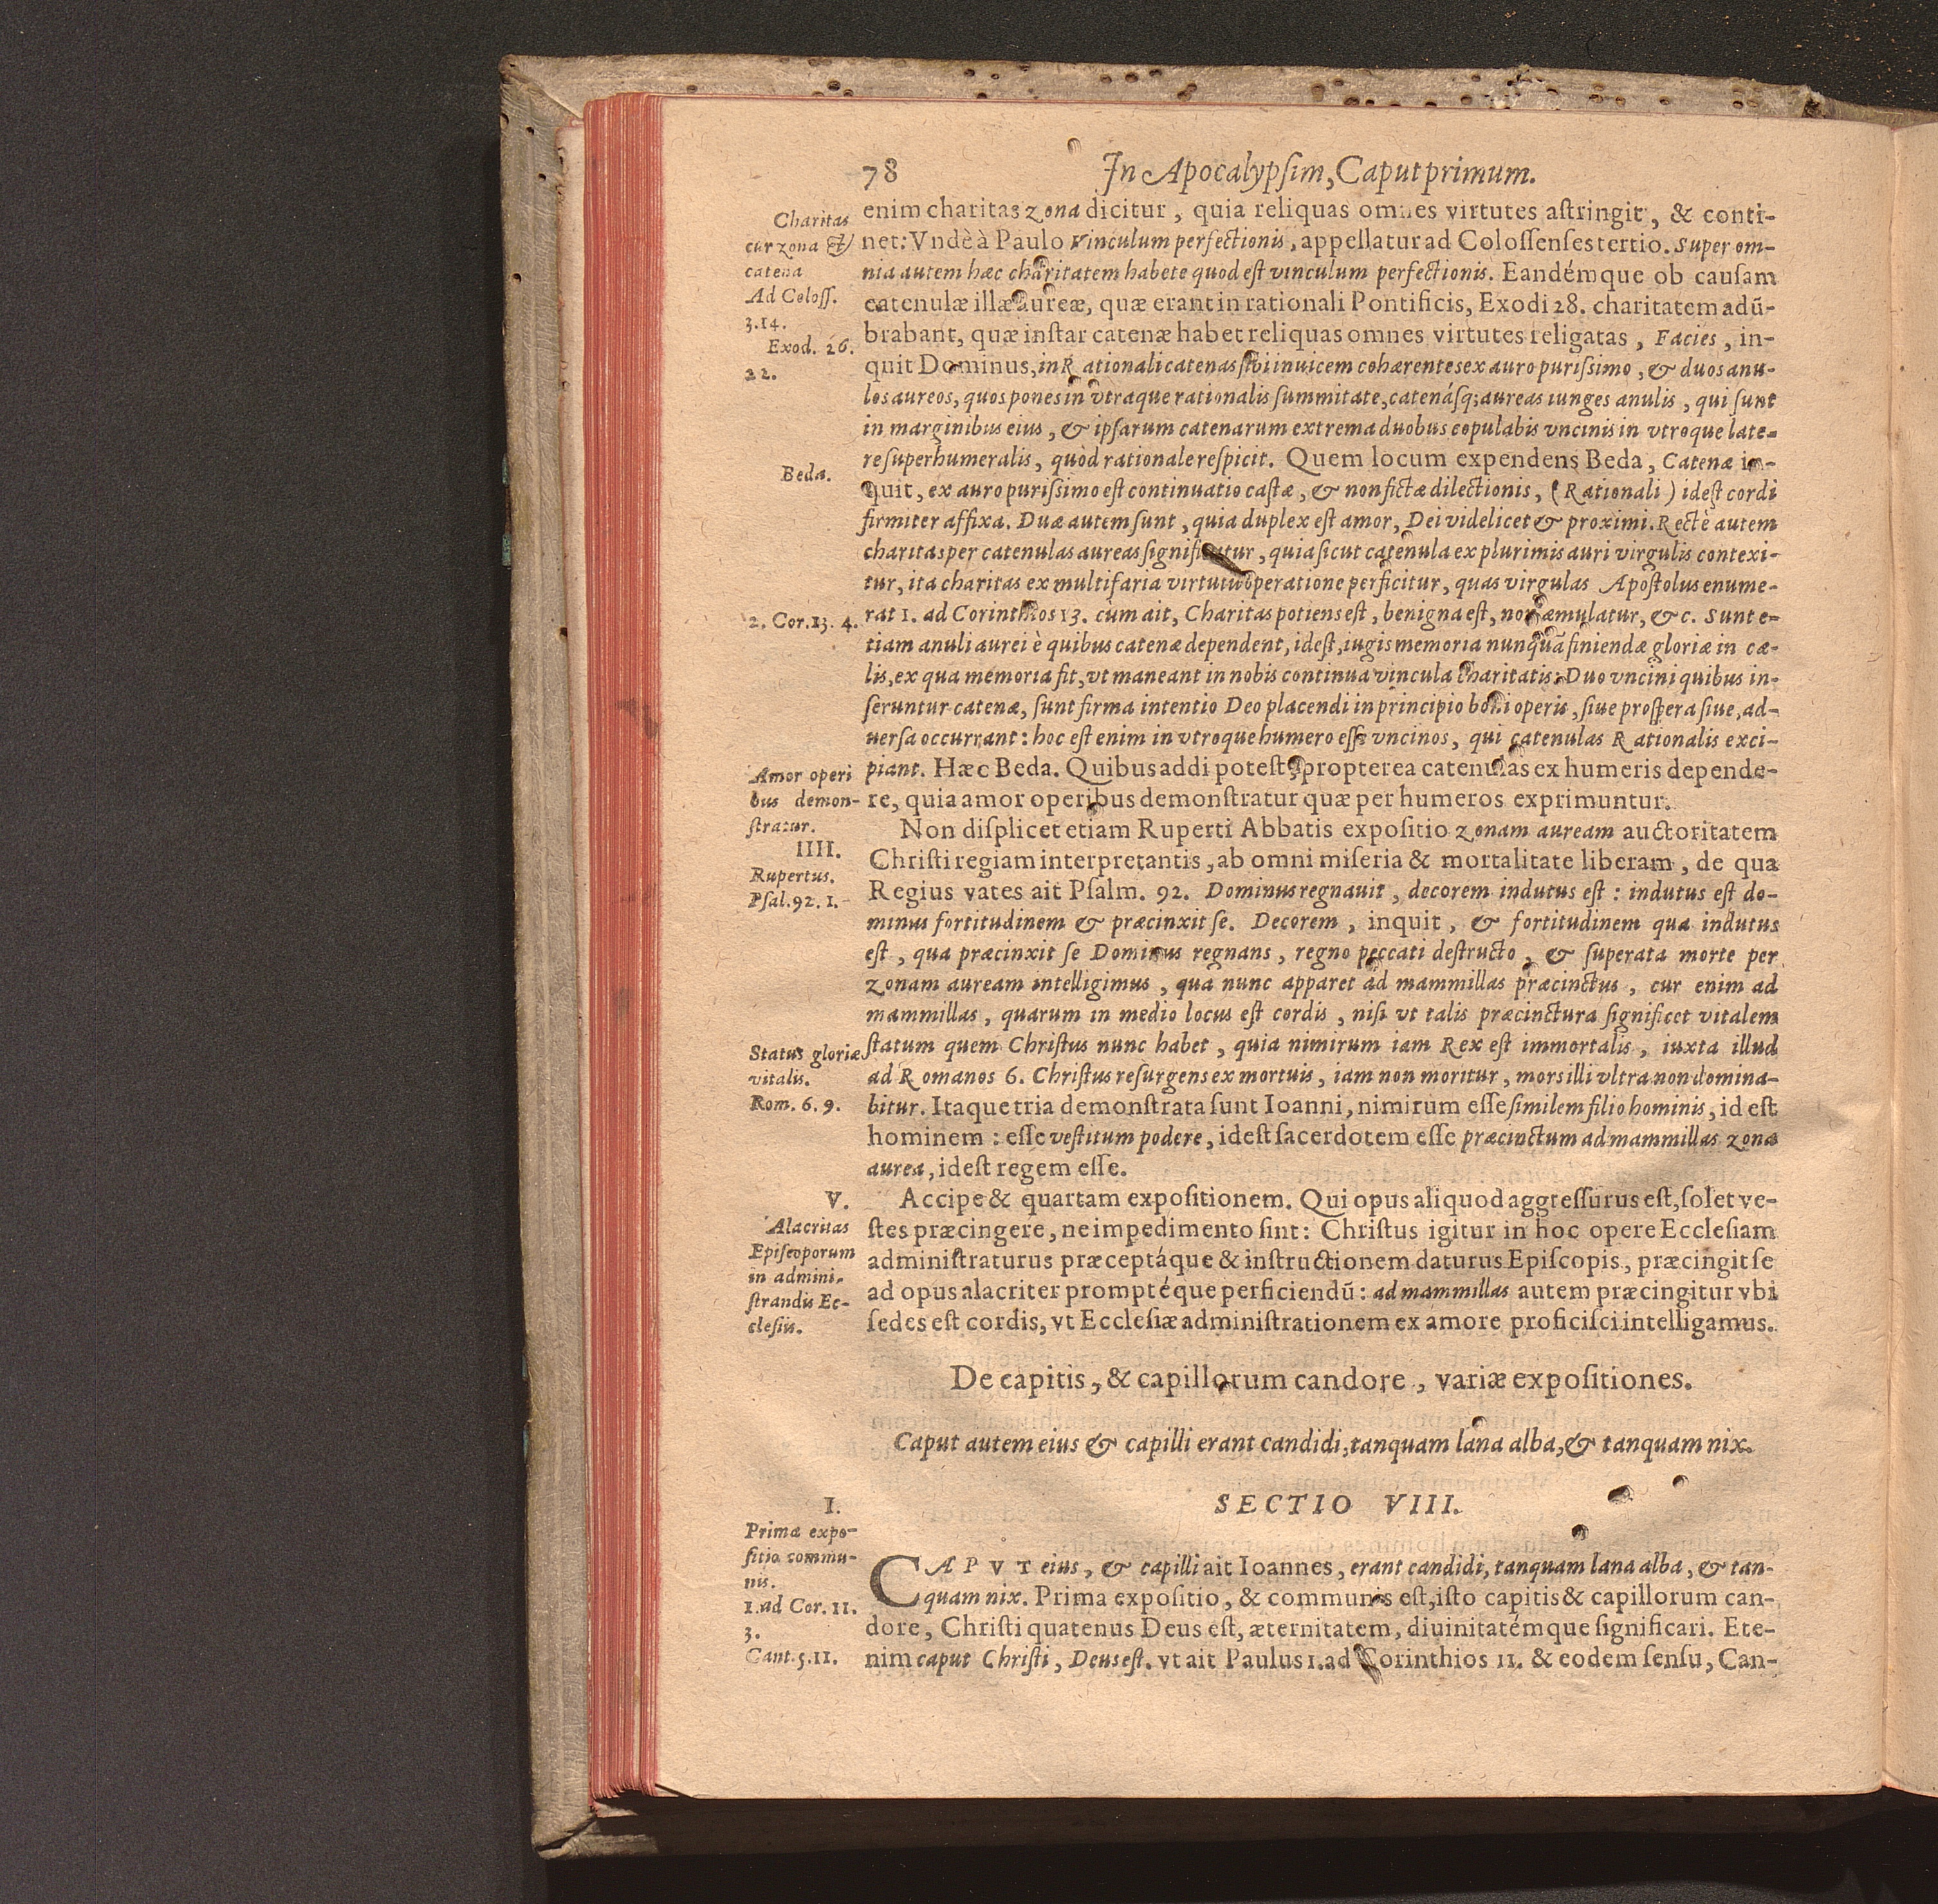 78 In Apocalypſim, Caput primum.
Charitas
cur zona &
catena
Ad Coloſſ.
3.14.
Exod. 26.
22.
Beda.
2. Cor. 13. 4.
Amor operi
bus demon-
ſtratur.
IIII.
Rupertus.
Pſal. 92. 1.
Status gloriæ
vitalis.
Rom. 6. 9.
V.
Alacritas
Epiſcoporum
in admini-
ſtrandis Ec-
cleſiis.
I.
Prima expo-
ſitio commu-
nis.
1. ad Cor. 11.
3.
Cant. 5. 11.
enim charitas zona dicitur, quia reliquas omnes virtutes aſtringit, & conti-
net: Vndè à Paulo Vinculum perfectionis, appellatur ad Coloſſenſes tertio. Super om-
nia autem hæc charitatem habete quod eſt vinculum perfectionis. Eandémque ob cauſam
catenulæ illæ aureæ, quæ erant in rationali Pontificis, Exodi 28. charitatem adũ-
brabant, quæ inſtar catenæ habet reliquas omnes virtutes religatas, Facies, in-
quit Dominus, in Rationali catenas ſibi inuicem cohærentes ex auro puriſsimo, & duos anu-
los aureos, quos pones in vtraque rationalis ſummitate, catenáſq; aureas iunges anulis, qui ſunt
in marginibus eius, & ipſarum catenarum extrema duobus copulabis vncinis in vtroque late-
re ſuperhumeralis, quòd rationale reſpicit. Quem locum expendens Beda, Catenæ in-
quit, ex auro puriſsimo eſt continuatio caſtæ, & non fictæ dilectionis, (Rationali) ideſt cordi
firmiter affixa. Duæ autem ſunt, quia duplex eſt amor, Dei videlicet & proximi. Rectè autem
charitas per catenulas aureas ſignificatur, quia ſicut catenula ex plurimis auri virgulis contexi-
tur, ita charitas ex multifaria virtutũ operatione perficitur, quas virgulas Apoſtolus enume-
rat 1. ad Corinthios 13. cùm ait, Charitas potiens eſt, benigna eſt, non æmulatur, &c. Sunt e-
tiam anuli aurei è quibus catenæ dependent, ideſt, iugis memoria nunquã finiendæ gloriæ in cæ-
lis, ex qua memoria fit, vt maneant in nobis continua vincula charitatis: Duo vncini quibus in-
ſeruntur catenæ, ſunt firma intentio Deo placendi in principio boni operis, ſiue proſpera ſiue, ad-
uerſa occurrant: hoc eſt enim in vtroque humero eſſe vncinos, qui catenulas Rationalis exci-
piant. Hæc Beda. Quibus addi poteſt, propterea catenulas ex humeris depende-
re, quia amor operibus demonſtratur quæ per humeros exprimuntur.
Non diſplicet etiam Ruperti Abbatis expoſitio zonam auream auctoritatem
Chriſti regiam interpretantis, ab omni miſeria & mortalitate liberam, de qua
Regius vates ait Pſalm. 92. Dominus regnauit, decorem indutus eſt: indutus eſt do-
minus fortitudinem & præcinxit ſe. Decorem, inquit, & fortitudinem qua indutus
eſt, qua præcinxit ſe Dominus regnans, regno peccati deſtructo, & ſuperata morte per
zonam auream intelligimus, qua nunc apparet ad mammillas præcinctus, cur enim ad
mammillas, quarum in medio locus eſt cordis, niſi vt talis præcinctura ſignificet vitalem
ſtatum quem Chriſtus nunc habet, quia nimirum iam Rex eſt immortalis, iuxta illud
ad Romanos 6. Chriſtus reſurgens ex mortuis, iam non moritur, mors illi vltra non domina-
bitur. Itaque tria demonſtrata ſunt Ioanni, nimirum eſſe ſimilem filio hominis, id eſt
hominem: eſſe veſtitum podere, ideſt ſacerdotem eſſe præcinctum ad mammillas zona
aurea, ideſt regem eſſe.
Accipe & quartam expoſitionem. Qui opus aliquod aggreſſurus eſt, ſolet ve-
ſtes præcingere, ne impedimento ſint: Chriſtus igitur in hoc opere Eccleſiam
adminiſtraturus præceptáque & inſtructionem daturus Epiſcopis, præcingit ſe
ad opus alacriter promptéque perficiendũ: ad mammillas autem præcingitur vbi
ſedes eſt cordis, vt Eccleſiæ adminiſtrationem ex amore proficiſci intelligamus.
De capitis, & capillorum candore, variæ expoſitiones.
Caput autem eius & capilli erant candidi, tanquam lana alba, & tanquam nix.
SECTIO VIII.
CAPVT eius, & capilli ait Ioannes, erant candidi, tanquam lana alba, & tan-
quam nix. Prima expoſitio, & communis eſt, iſto capitis & capillorum can-
dore, Chriſti quatenus Deus eſt, æternitatem, diuinitatémque ſignificari. Ete-
nim caput Chriſti, Deus eſt. vt ait Paulus 1. ad Corinthios 11. & eodem ſenſu, Can-